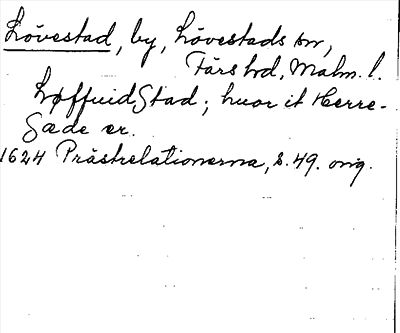 Lövestad, by, Lövestads sn,
Färs hd, Malm. l.
Løffuid Stad; huor it Herre-
Sæde er.
1624 Prästrelationerna, s. 49. orig.